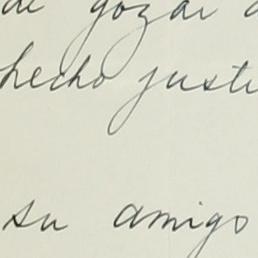 de gozar
hecho justi
su amigo